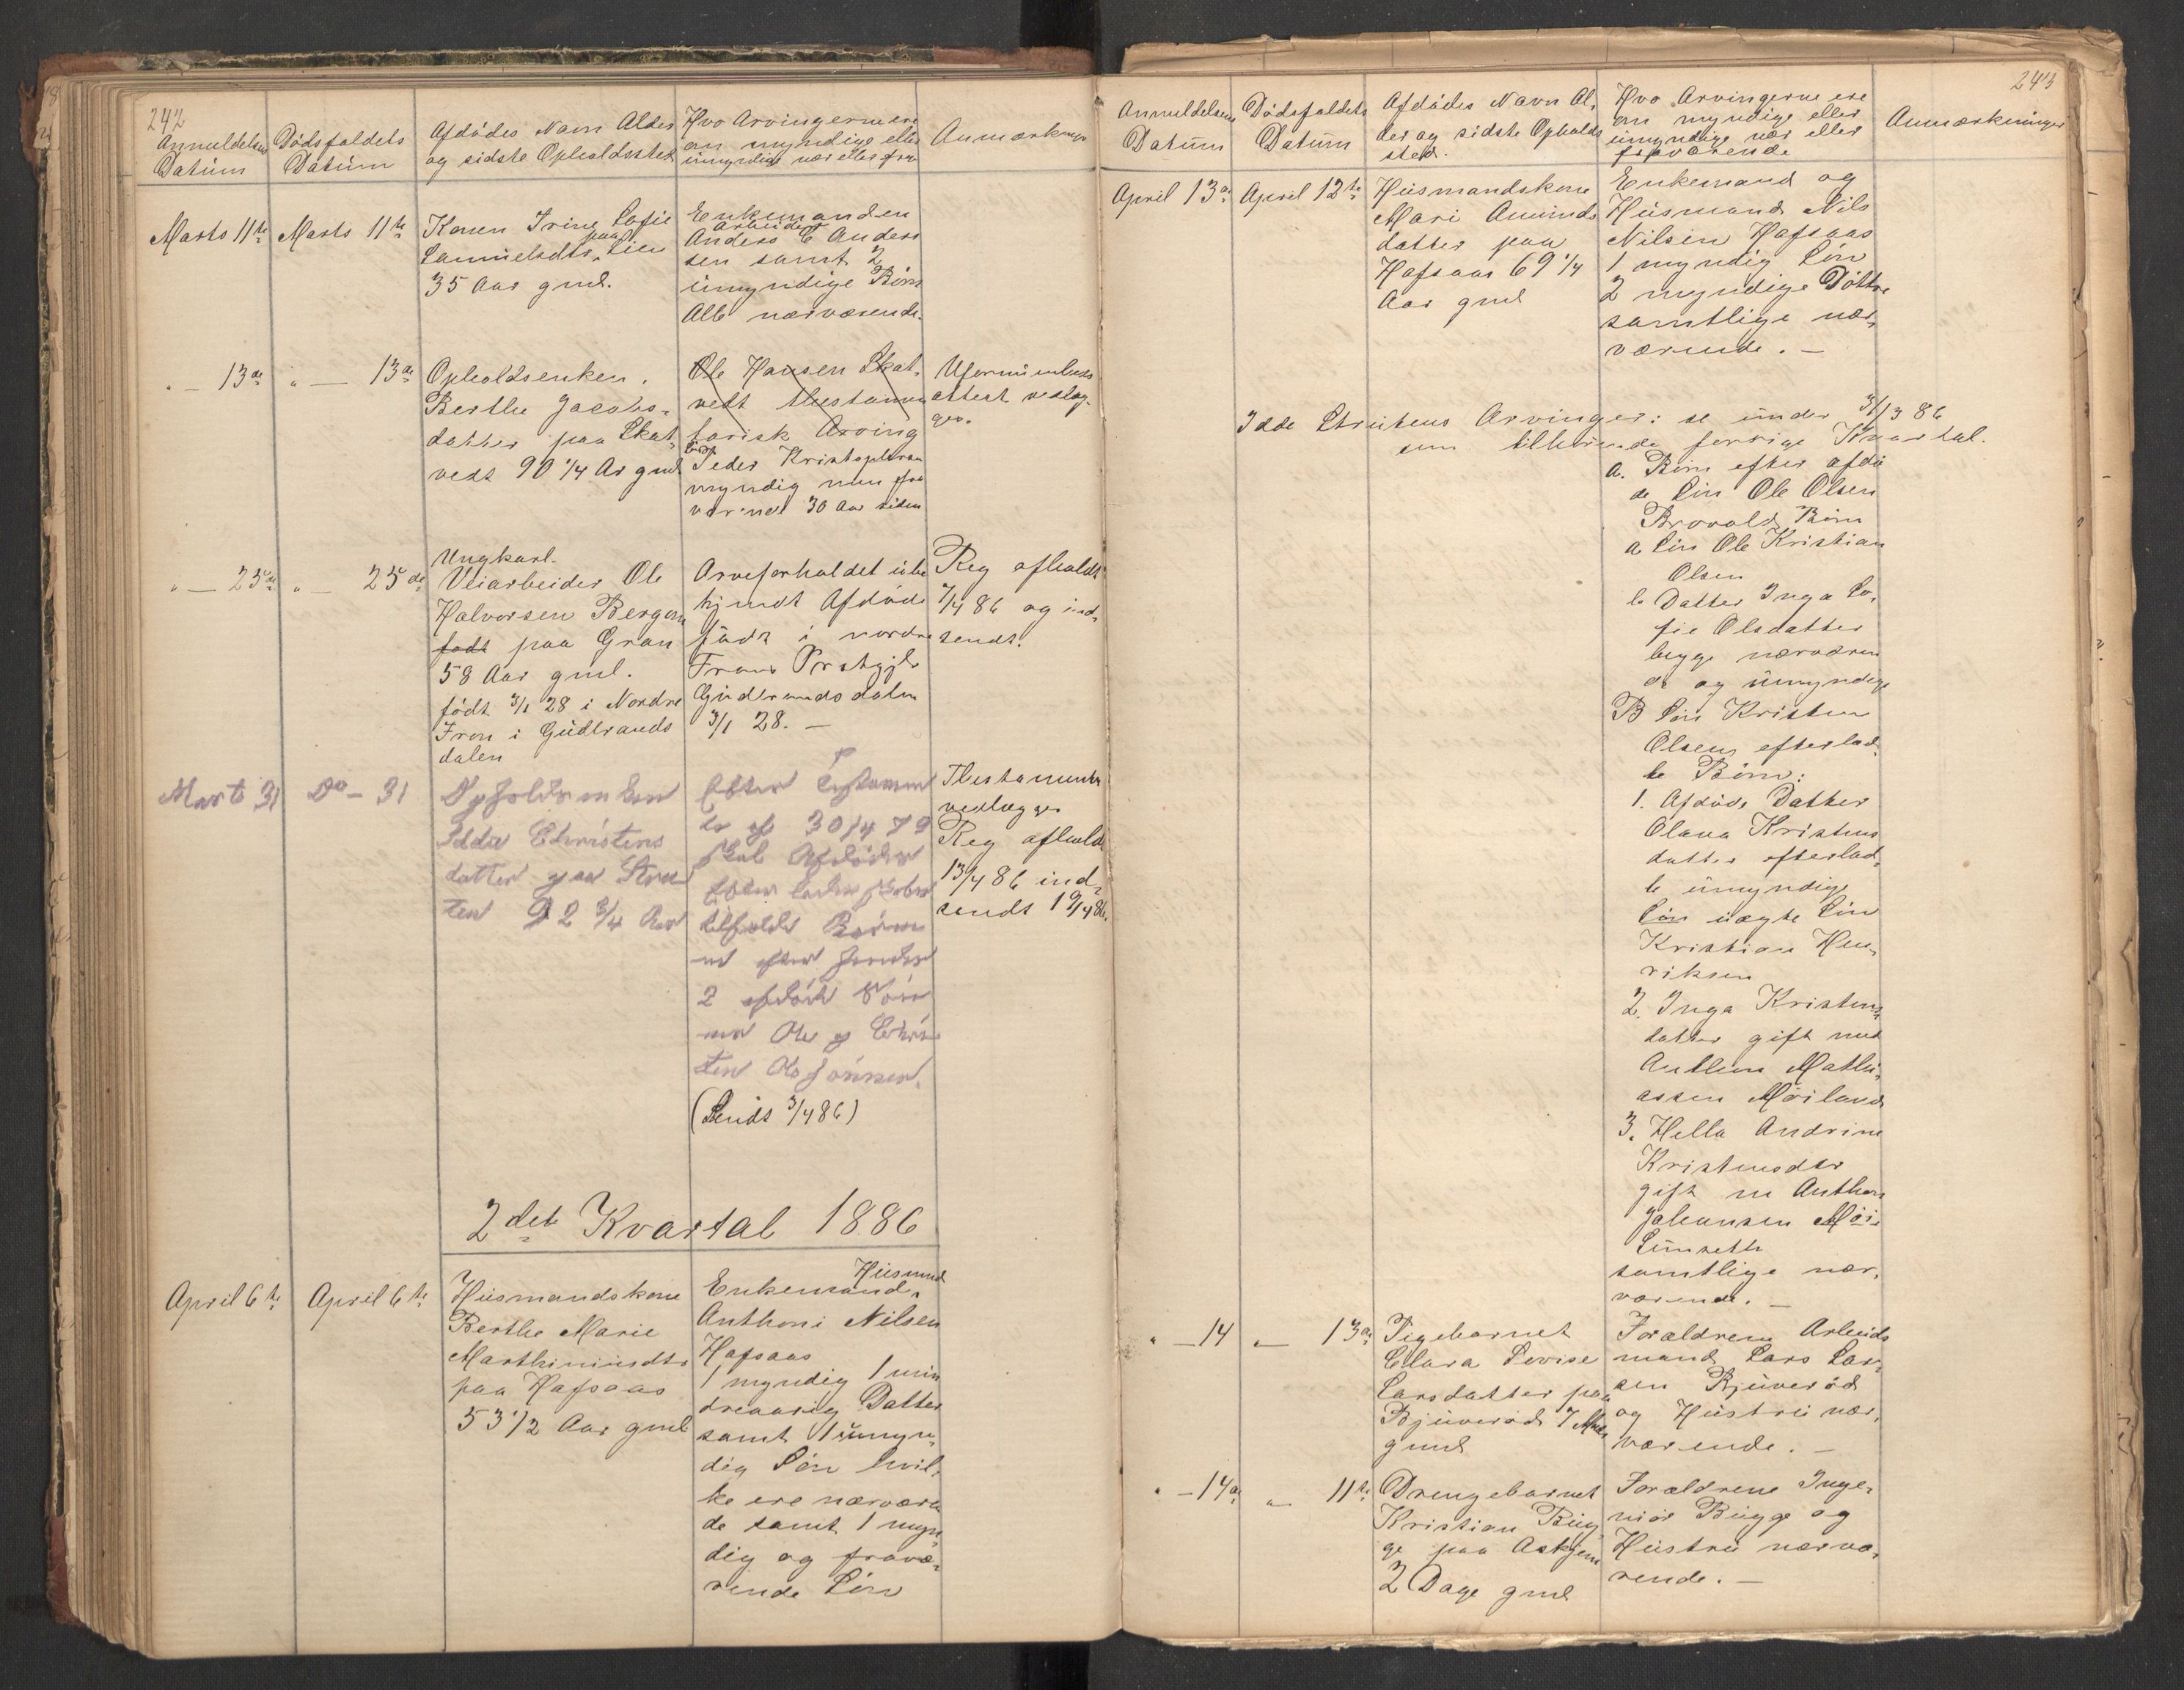 242
Anmeldelsens
Datum
Dødsfaldets
Datum
Afdødes Navn Alder
og sidste Opholdssted
Hvo Arvingerne ere
om myndige eller
umyndige nær eller fra
Anmærkninger
Marts 11te
Marts 11te
Konen Irine Sofie
Samuelsdtr. paa Lien
35 Aar gml.
Enkemanden
Arbeider
Anders E Anders
sen samt 2
umyndige Børn
Alle nærværende.
" — 13de
" — 13de
Opholdsenken
Berthe Jacobs-
datter paa Skat-
vedt 90 1/4 Ar gml
Ole Hansen Skat-
vedt thestamen
tarisk Arving
Peder Kristophersen
myndig men fra
værende 30 Aar siden
attest vedlæg-
ges.
" — 25de
" — 25de
Ungkarl.
Veiarbeider Ole
Halvorsen Bergom
født paa Gran
58 Aar gml.
født 3/1 28 i Nordre
Fron i Gudbrands
dalen
Arveforholdet ube
kjendt Afdøde
født i nordre
Frons Prstgjld
Gudbrandsdalen
3/1 28. —
Reg afholdt
7/4 86 og ind-
sendt.
Marts 31
Do — 31
Opholdsenken
Idda Christens
datter paa Stru
ten 92 3/4 Aar
Efter Testamen
te af 30/4 79
skal Afdødes
Efterladenskaber
tilfalde Børne
ne efter hendes
2 afdøde Søn
ner Ole og Chris
ten Olssønner.
(Sendt 3/4 86)
Thestamente
vedlægges
Reg afholdt
13/4 86 ind-
sendt 19/4 86.
2det Kvartal 1886
April 6te
April 6te
Husmandskone
Berthe Marie
Marthinusdtr
paa Hafsaas
53 1/2 Aar gml
Husmnd
Enkemand
Anthoni Nilsen
Hafsaas
1 myndig 1 min
dreaarig Datter
samt 1 umyn-
dig Søn hvil-
ke ere nærværen
de samt 1 myn-
dig og fravæ-
rende Søn
243
Anmeldelsens
Datum
Dødsfaldets
Datum
Afdødes Navn Al-
der og sidste Opholds
sted.
Hvo Arvingerne ere
om myndige eller
umyndige nær eller
fraværende
Anmærkninger
April 13de
April 12te
Husmandskone
Mari Amunds
datter paa
Hafsaas 69 1/4
Aar gml
Enkemand og
Husmand Nils
Nilsen Hafsaas
1 myndig Søn
2 myndige Døttre
samtlige nær-
værende. —
Idde Strutens Arvinger: se under 31/3 86
som tilhørende forrige Kvartal.
A. Børn efter afdø
de Søn Ole Olsen
Brovold Børn
a Søn Ole Kristian
Olsen
b Datter Inga So-
fie Olsdatter
begge nærværen
de og umyndige
B Søn Kristen
Olsens efterlad-
te Børn:
1. Afdøde Datter
Olava Kristens
datter efterlad-
te umyndige
Søn uægte Søn
Kristian Hen-
riksen
2. Inga Kristens
datter gift med
Anthon Mathi-
assen Møiland
3. Hella Andrine
Kristensdtr
gift m Anthon
Johansen Møi-
Sunseth
samtlige nær-
værende. —
" — 14
" — 13de
Pigebarnet
Clara Lovise
Larsdatter paa
Bjuverød 7 Mndr
gml
Forældrene Arbeids
mand Lars Lar-
sen Bjuverød
og Hustru nær-
værende. —
" — 14de
" — 11te
Drengebarnet
Kristian Bug-
ge paa Askjem
2 Dage gml
Forældrene Inge-
niør Bugge og
Hustru nærvæ-
rende. —